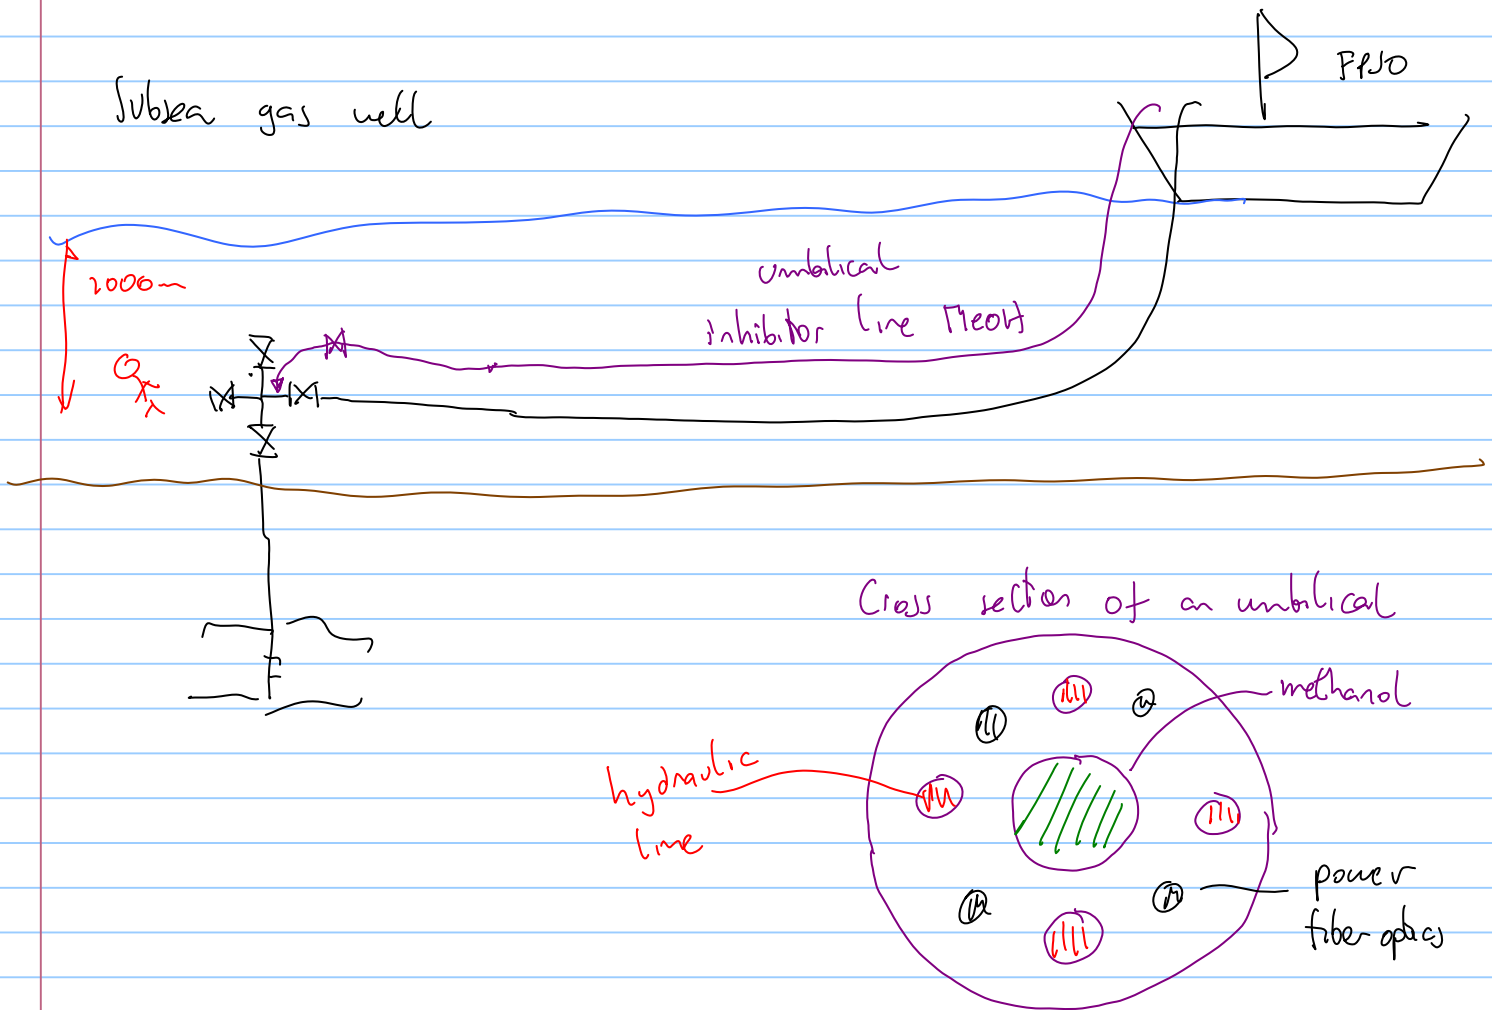 FPSO
Subsea gas well
2000m
umbilical
inhibitor line MeOH
Cross section of an umbilical
methanol
hydraulic
line
power
fiber optics